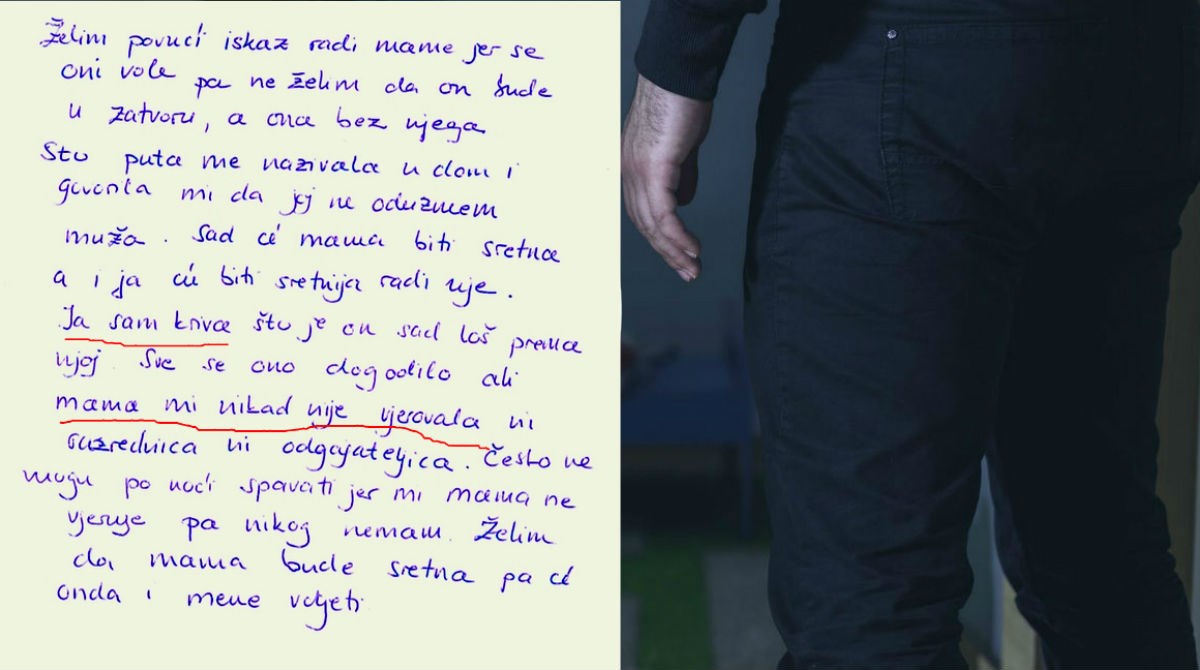 Želim povući iskaz radi mame jer se
oni vole pa ne želim da on bude
u zatvoru, a ona bez njega
Sto puta me nazivala u dom i
govorila mi da joj ne oduzmem
muža. Sad će mama biti sretna
a i ja ću biti sretnija radi nje.
Ja sam kriva što je on sad loš prema
njoj. Sve se ono dogodilo ali
mama mi nikad nije vjerovala ni
razrednica ni odgajateljica. Često ne
mogu po noći spavati jer mi mama ne
vjeruje pa nikog nemam. Želim
da mama bude sretna pa će
onda i mene voljeti